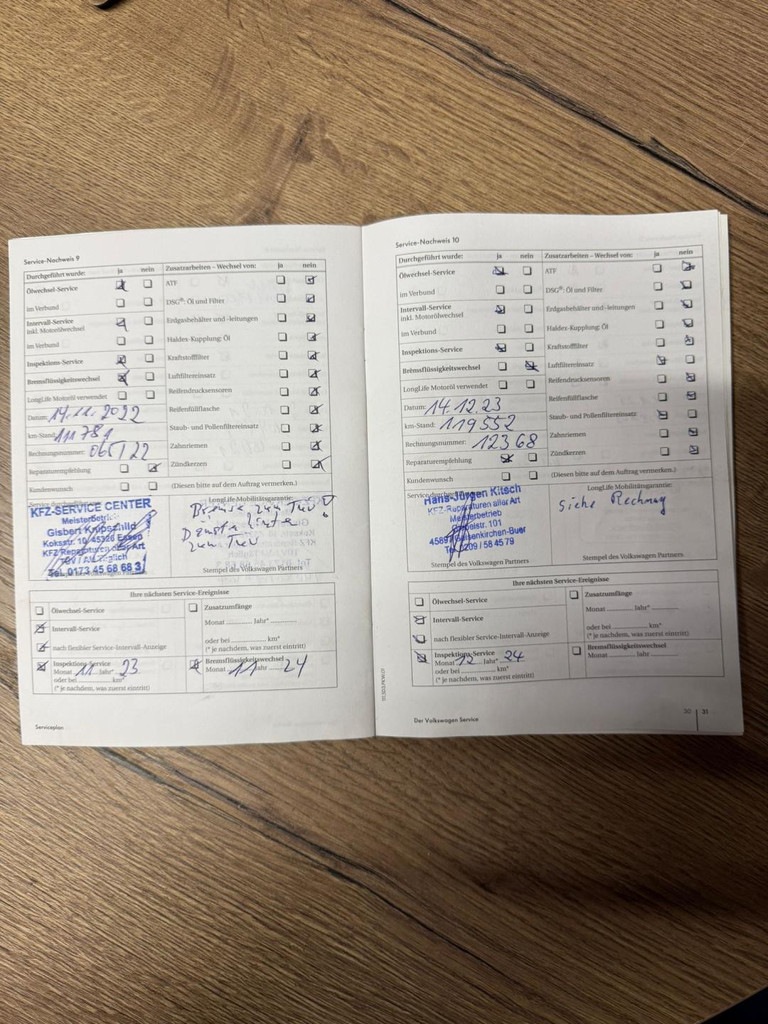 Service-Nachweis 9
Durchgeführt wurde: ja nein
Ölwechsel-Service
im Verbund
Intervall-Service
inkl. Motorölwechsel
im Verbund
Inspektions-Service
Bremsflüssigkeitswechsel
LongLife Motoröl verwendet
Datum: 14.11.2022
km-Stand: 111781
Rechnungsnummer: 065/22
Reparaturempfehlung
Kundenwunsch
Zusatzarbeiten – Wechsel von: ja nein
ATF
DSG®: Öl und Filter
Erdgasbehälter und -leitungen
Haldex-Kupplung: Öl
Kraftstofffilter
Luftfiltereinsatz
Reifendrucksensoren
Reifenfüllflasche
Staub- und Pollenfiltereinsatz
Zahnriemen
Zündkerzen
(Diesen bitte auf dem Auftrag vermerken.)
KFZ-SERVICE CENTER
Meisterbetrieb
Gisbert
Koksstr. 10, 45326 Essen
KFZ Reparaturen aller Art
Tel. 0173 45 68 68 3
LongLife-Mobilitätsgarantie:
Bremse zum TüV
zum TüV
Stempel des Volkswagen Partners
Ihre nächsten Service-Ereignisse
Ölwechsel-Service
Intervall-Service
nach flexibler Service-Intervall-Anzeige
Inspektions-Service
Monat 11 Jahr* 23
oder bei km*
(* je nachdem, was zuerst eintritt)
Zusatzumfänge
Monat Jahr*
oder bei km*
(* je nachdem, was zuerst eintritt)
Bremsflüssigkeitswechsel
Monat 11 Jahr 24
Serviceplan
Service-Nachweis 10
Durchgeführt wurde: ja nein
Ölwechsel-Service
im Verbund
Intervall-Service
inkl. Motorölwechsel
im Verbund
Inspektions-Service
Bremsflüssigkeitswechsel
LongLife Motoröl verwendet
Datum: 14.12.23
km-Stand: 119552
Rechnungsnummer: 12368
Reparaturempfehlung
Kundenwunsch
Zusatzarbeiten – Wechsel von: ja nein
ATF
DSG®: Öl und Filter
Erdgasbehälter und -leitungen
Haldex-Kupplung: Öl
Kraftstofffilter
Luftfiltereinsatz
Reifendrucksensoren
Reifenfüllflasche
Staub- und Pollenfiltereinsatz
Zahnriemen
Zündkerzen
(Diesen bitte auf dem Auftrag vermerken.)
Hans-Jürgen Kitsch
KFZ-Reparaturen aller Art
Meisterbetrieb
101
Gelsenkirchen-Buer
Tel. 0209 / 58 45 79
Stempel des Volkswagen Partners
LongLife-Mobilitätsgarantie:
Siehe Rechnung
Stempel des Volkswagen Partners
Ihre nächsten Service-Ereignisse
Ölwechsel-Service
Intervall-Service
nach flexibler Service-Intervall-Anzeige
Inspektions-Service
Monat 12 Jahr* 24
oder bei km*
(* je nachdem, was zuerst eintritt)
Zusatzumfänge
Monat Jahr*
oder bei km*
(* je nachdem, was zuerst eintritt)
Bremsflüssigkeitswechsel
Monat Jahr
Der Volkswagen Service
30 | 31